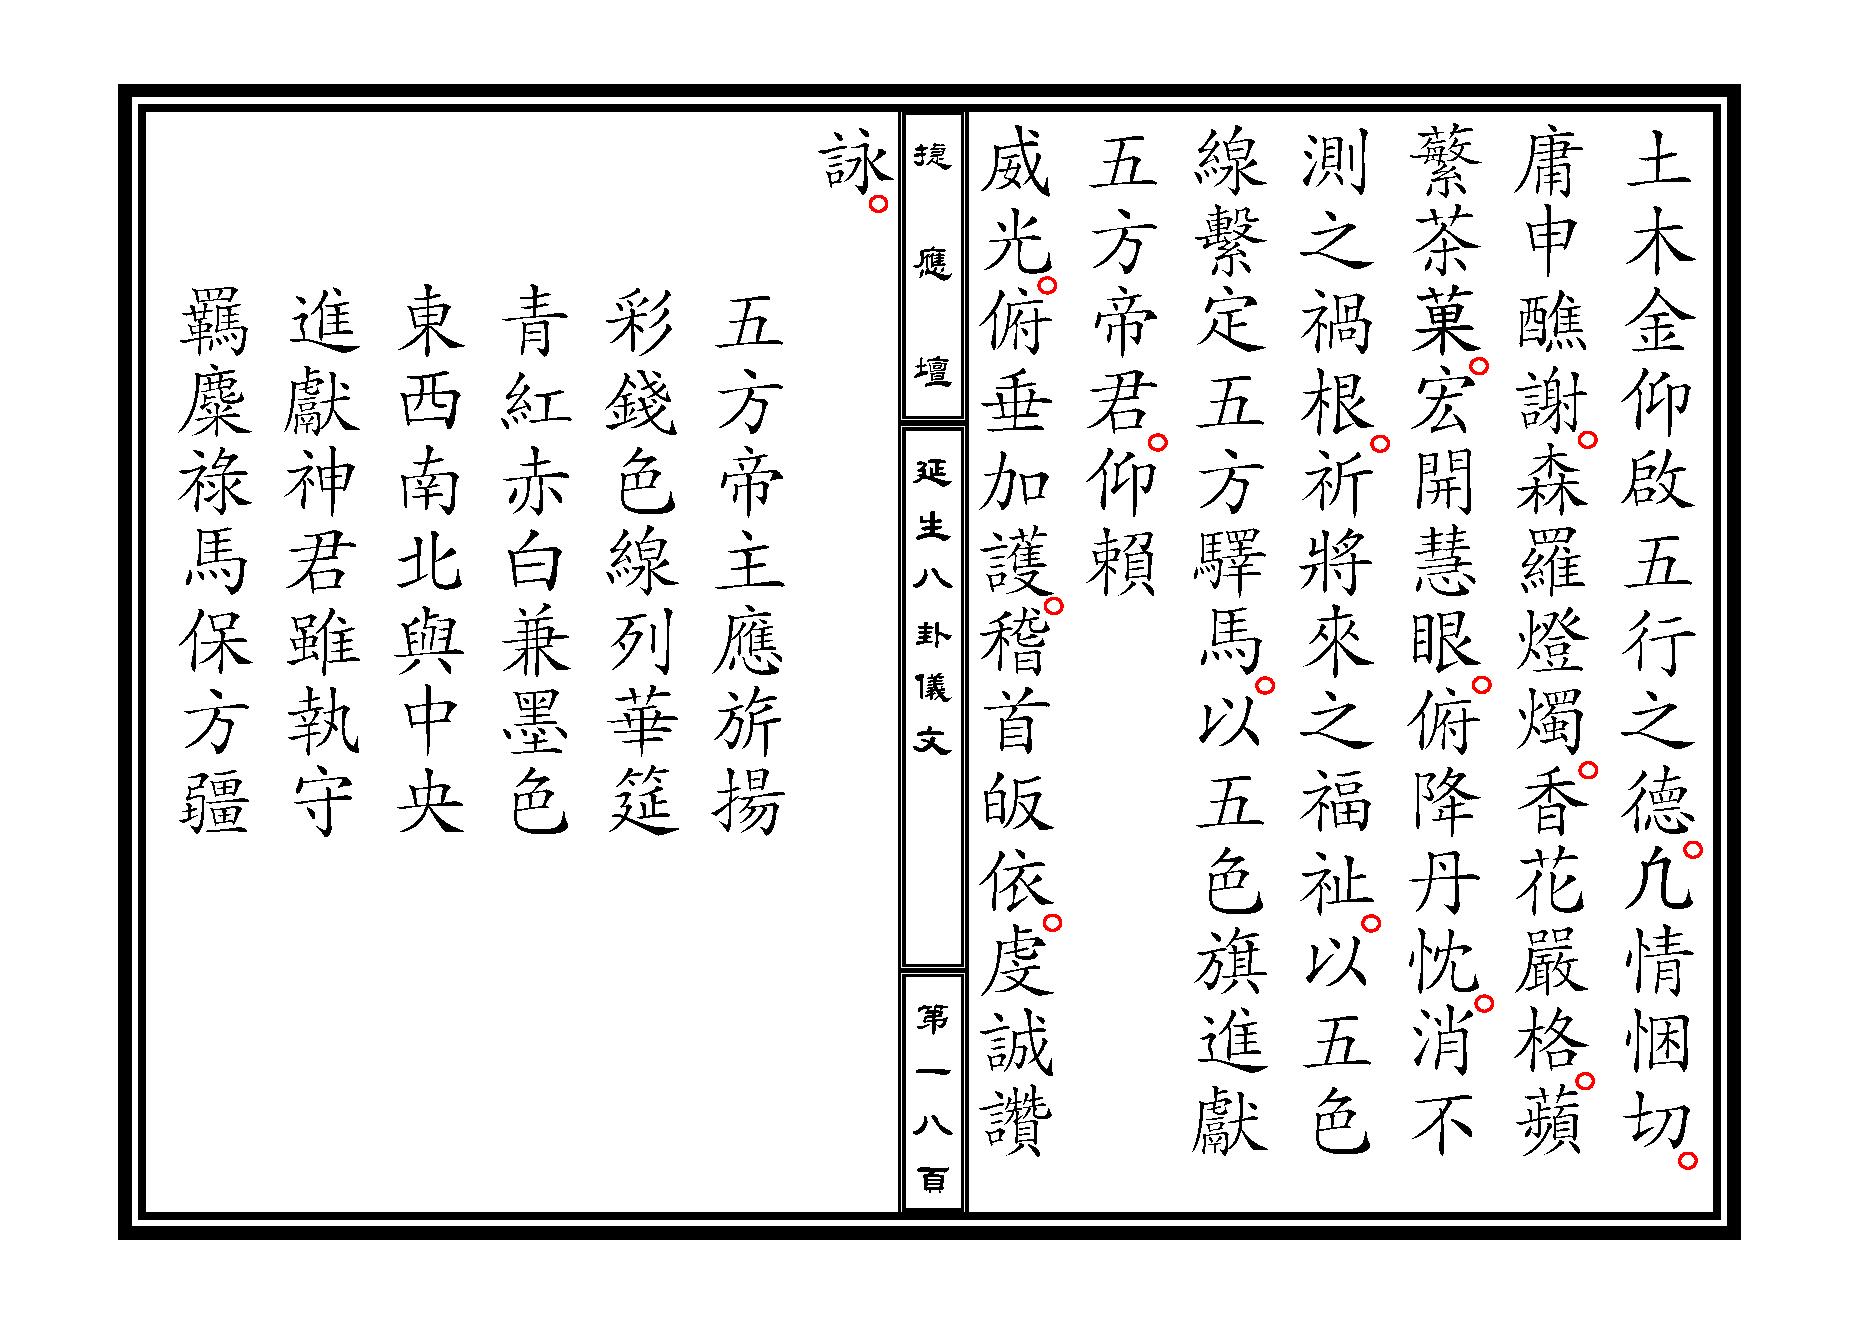 土木金仰啟五行之德。凢情悃切。
庸申醮謝。森羅燈燭。香花嚴格。蘋
蘩茶菓。宏開慧眼。俯降丹忱。消不
測之禍根。祈將來之福祉。以五色
線繫定五方驛馬。以五色旗進獻
五方帝君。仰賴
威光。俯垂加護。稽首皈依。虔誠讚
捷應壇
延生八卦儀文
第一八頁
詠。
五方帝主應旂揚
彩錢色線列華筵
青紅赤白兼墨色
東西南北與中央
進獻神君雖執守
羈麋祿馬保方疆